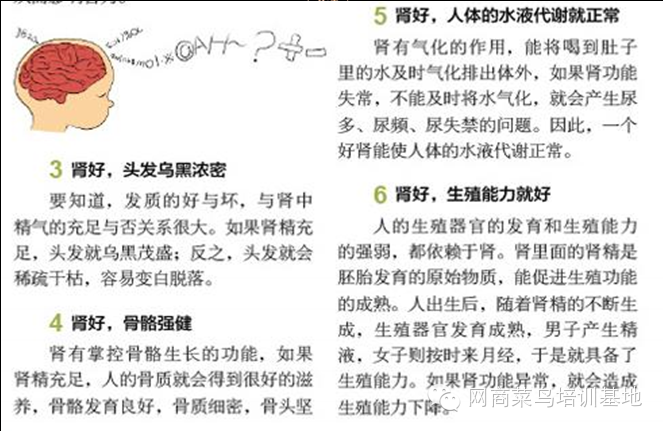 @
?
3 肾好，头发乌黑浓密
要知道，发质的好与坏，与肾中
精气的充足与否关系很大。如果肾精充
足，头发就乌黑茂盛；反之，头发就会
稀疏干枯，容易变白脱落。
4 肾好，骨骼强健
肾有掌控骨骼生长的功能，如果
肾精充足，人的骨质就会得到很好的滋
养，骨骼发育良好，骨质细密，骨头坚
5 肾好，人体的水液代谢就正常
肾有气化的作用，能将喝到肚子
里的水及时气化排出体外，如果肾功能
失常，不能及时将水气化，就会产生尿
多、尿频、尿失禁的问题。因此，一个
好肾能使人体的水液代谢正常。
6 肾好，生殖能力就好
人的生殖器官的发育和生殖能力
的强弱，都依赖于肾。肾里面的肾精是
胚胎发育的原始物质，能促进生殖功能
的成熟。人出生后，随着肾精的不断生
成，生殖器官发育成熟，男子产生精
液，女子则按时来月经，于是就具备了
生殖能力。如果肾功能异常，就会造成
生殖能力下降。
网商菜鸟培训基地